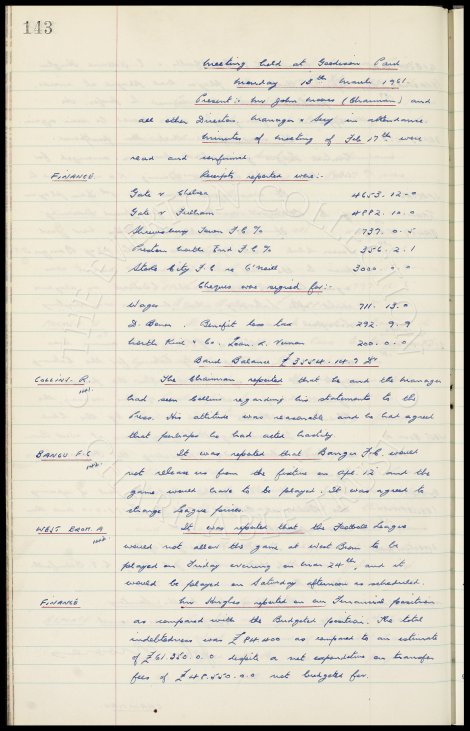 143
Meeting held at Goodison Park
Monday 13th March 1961.
Present:- Mr John Moores (Chairman) and
all other Directors. Manager & Secy in attendance.
Minutes of meeting of Feb 17th were
read and confirmed.
FINANCE. Receipts reported were:-
Gate v Chelsea 4653.12.0
Gate v Fulham 4992.10.0
Shrewsbury Town F.C. % 737.0.5
Preston North End F.C. % 356.2.1
Stoke City F.C. re O'Neill 3000.0.0
Cheques was signed for:-
Wages 711.13.0
D. Benefit less tax 292.9.9
North Kirk & Co. Loan. R. Vernon 200.0.0
Bank Balance £35554.14.9 Dr
COLLINS. R. The Chairman reported that he and the Manager
had seen Collins regarding his statements to the
Press. His attitude was reasonable and he had agreed
that perhaps he had acted hastily.
BANGU F.C. It was reported that Bangu F.C. would
not release us from the fixture on Apl. 12 and the
game would have to be played. It was agreed to
change League games.
WEST BROM. A It was reported that the Football League
would not allow the game at West Brom to be
played on Friday evening on Mar 24th, and it
would be played on Saturday afternoon as scheduled.
FINANCE Mr Hughes reported on our Financial position
as compared with the Budgeted position. The total
indebtedness was £84,400 as compared to an estimate
of £61.250.0.0 despite a net expenditure on transfer
fees of £48.550.0.0 not budgeted for.